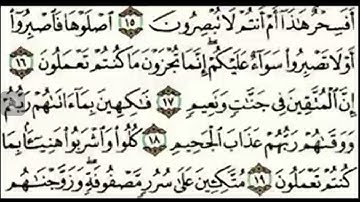 أَفَسِحْرٌ هَٰذَا أَمْ أَنتُمْ لَا تُبْصِرُونَ ١٥ اصْلَوْهَا فَاصْبِرُوا
أَوْ لَا تَصْبِرُوا سَوَاءٌ عَلَيْكُمْ ۖ إِنَّمَا تُجْزَوْنَ مَا كُنتُمْ تَعْمَلُونَ ١٦
إِنَّ الْمُتَّقِينَ فِي جَنَّاتٍ وَنَعِيمٍ ١٧ فَاكِهِينَ بِمَا آتَاهُمْ رَبُّهُمْ
وَوَقَاهُمْ رَبُّهُمْ عَذَابَ الْجَحِيمِ ١٨ كُلُوا وَاشْرَبُوا هَنِيئًا بِمَا
كُنتُمْ تَعْمَلُونَ ١٩ مُتَّكِئِينَ عَلَىٰ سُرُرٍ مَّصْفُوفَةٍ ۖ وَزَوَّجْنَاهُم